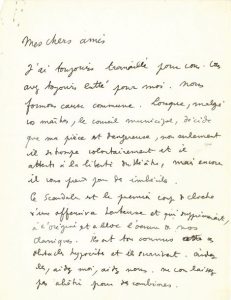 Mes chers amis
J'ai toujours travaillé pour vous. Vous
avez toujours lutté pour moi. Nous
formons cause commune. Lorsque, malgré
le conseil municipal, décide
que ma pièce est dangereuse, non seulement
il se trompe volontairement et il
attente à la liberté du théâtre, mais encore
il vous prend pour des imbéciles.
Le scandale est le premier coup de cloche
d'une offensive honteuse et qui supprimerait,
à l'origine et en bloc l'œuvre de nos
classiques. Ils ont tous connus cette
obstacle hypocrite et le survivent. aidez
les, aidez moi, aidez nous. ne vous laissez
pas abêtir pour des combines.